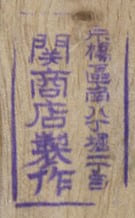 京橋區南八丁堀二ノ一
関商店製作